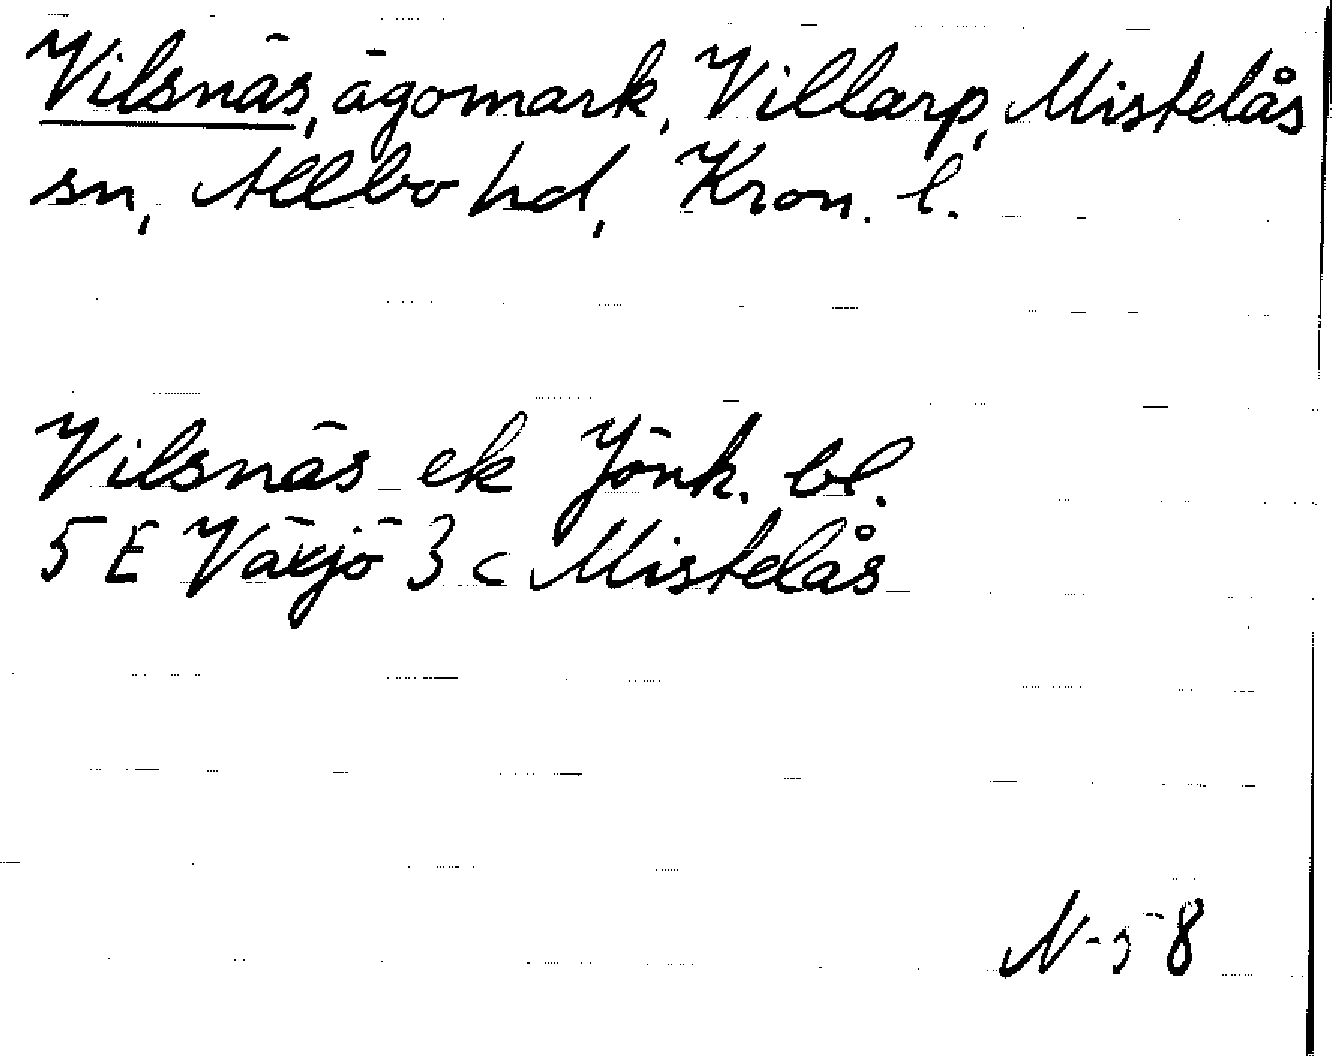 Vilsnäs, ägomark, Villarp, Mistelås
sn, Allbo hd, Kron. l.
Vilsnäs ek Jönk. bl.
5 E Växjö 3 c Mistelås
N-58